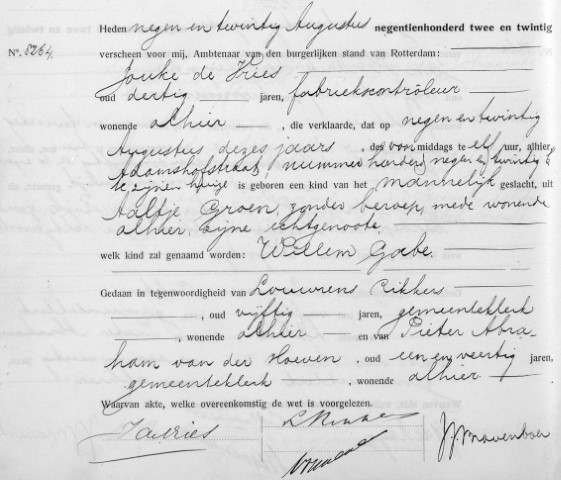 Heden negen en twintig Augustus negentienhonderd twee en twintig
No. 8264. verscheen voor mij, Ambtenaar van den burgerlijken stand van Rotterdam:
Jouke de Vries
oud dertig jaren, fabriekscontrôleur
wonende alhier, die verklaarde, dat op negen en twintig
Augustus dezes jaars, des voormiddags te elf uur, alhier
Adamshofstraat, nummer honderd negen en twintig b
te zijnen huize is geboren een kind van het mannelijk geslacht, uit
Aaltje Groen, zonder beroep, mede wonende
alhier, zijne echtgenoote.
welk kind zal genaamd worden: Willem Gabe.
Gedaan in tegenwoordigheid van Louwrens Rikkers
, oud vijftig jaren, gemeenteklerk
, wonende alhier en van Pieter Abra-
ham van der Hoeven, oud een en veertig jaren,
gemeenteklerk, wonende alhier
Waarvan akte, welke overeenkomstig de wet is voorgelezen.
JdeVries